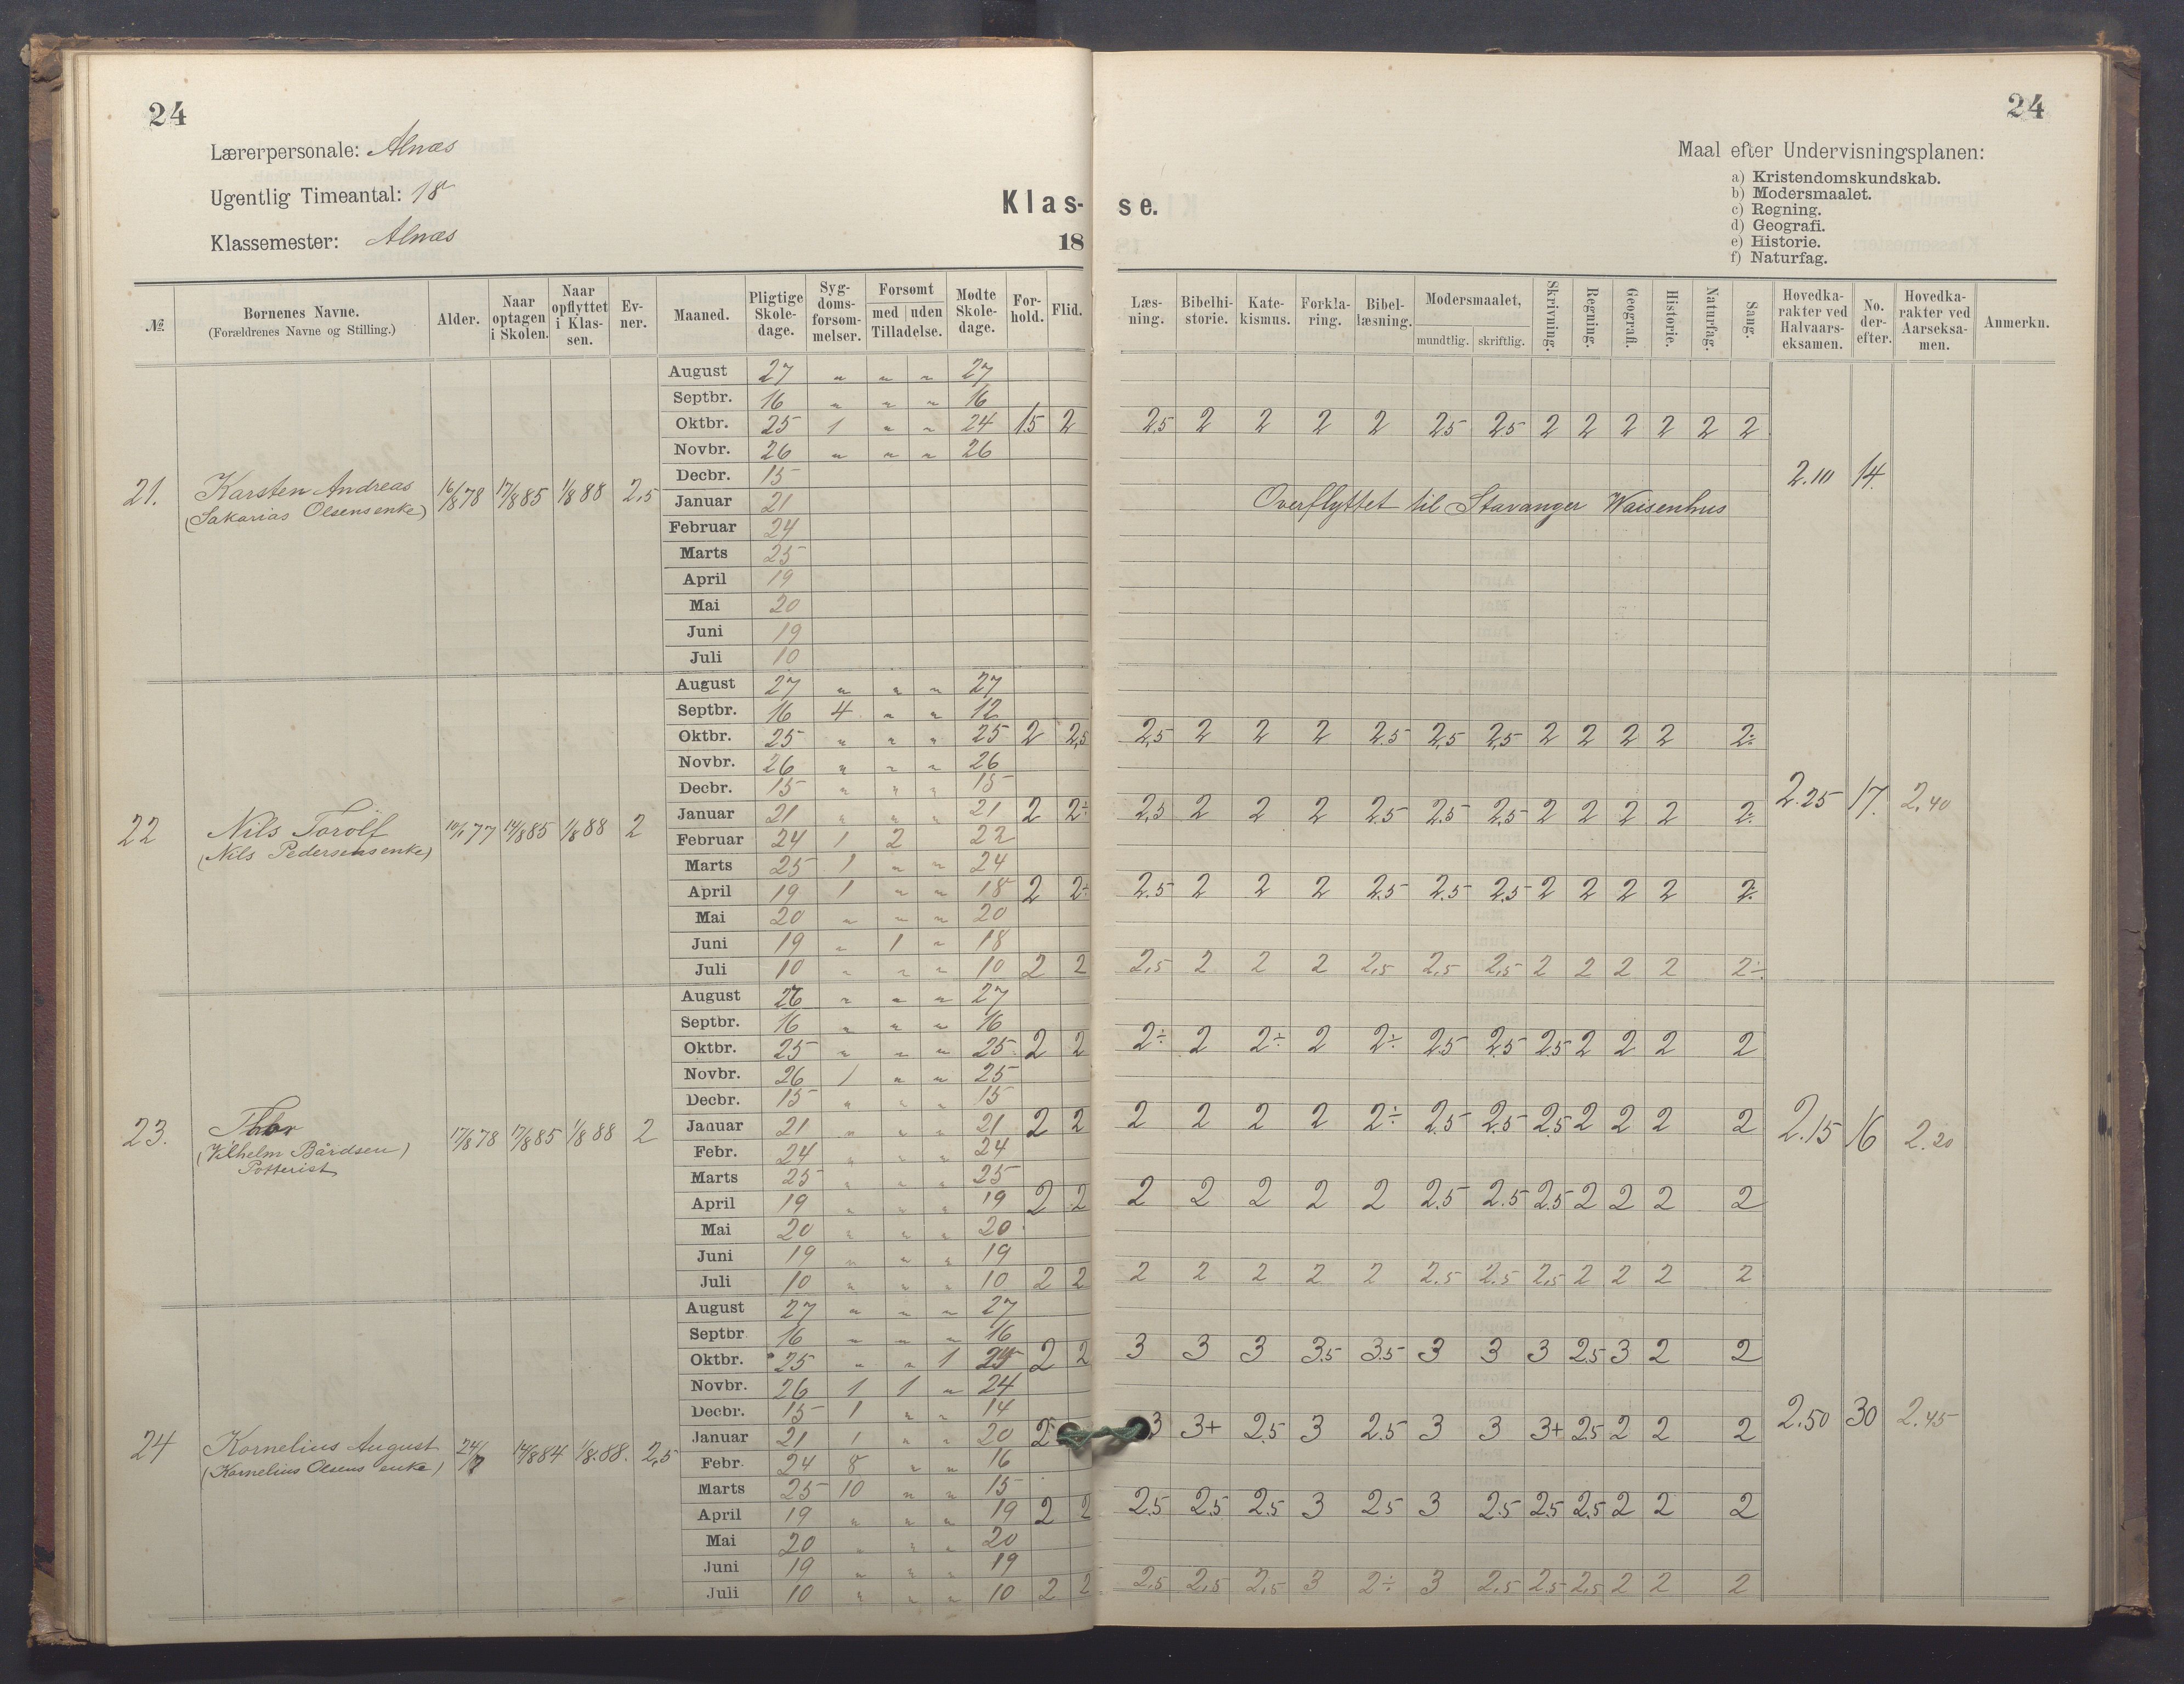 24
Lærerpersonale: Alnæs
Ugentlig Timeantal: 18
Klassemester: Alnæs
Klas-
18
№
Børnenes Navne.
(Forældrenes Navne og Stilling.)
Alder.
Naar optagen i Skolen.
Naar opflyttet i Klas-sen.
Ev-ner.
Maaned.
Pligtige Skole-dage.
Syg-doms-forsøm-melser.
Forsømt
med | uden
Tilladelse.
Mødte Skole-dage.
For-hold.
Flid.
24
Maal efter Undervisningsplanen:
a) Kristendomskundskab.
b) Modersmaalet.
c) Regning.
d) Geografi.
e) Historie.
f) Naturfag.
se.
Læs-ning.
Bibelhi-storie.
Kate-kismus.
Forkla-ring.
Bibel-læsning.
Modersmaalet,
mundtlig. skriftlig.
Skrivning.
Regning.
Geografi.
Historie.
Naturfag.
Sang.
Hovedka-rakter ved Halvaars-eksamen.
No. der-efter.
Hovedka-rakter ved Aarseksa-men.
Anmerkn.
21. Karsten Andreas 16/8 78 17/8 85 1/8 88 2,5
(Sakarias Olsens enke)
August 27 „ „ „ 27
Septbr. 16 „ „ „ 16
Oktbr. 25 1 „ „ 24 1,5 2 2,5 2 2 2 2 2,5 2,5 2 2 2 2 2 2
Novbr. 26 „ „ „ 26
Decbr. 15
Januar 21
Februar 24
Marts 25
April 19
Mai 20
Juni 19
Juli 10
Overflyttet til Stavanger Waisenhus
2.10 14.
22 Nils Torolf 10/1 77 14/8 85 1/8 88 2
(Nils Pedersens enke)
August 27 „ „ „ 27
Septbr. 16 4 „ „ 12
Oktbr. 25 „ „ „ 25 2 2,5 2,5 2 2 2 2.5 2,5 2,5 2 2 2 2 2÷
Novbr. 26 „ „ „ 26
Decbr. 15 „ „ „ 15
Januar 21 „ „ „ 21 2 2÷ 2,5 2 2 2 2.5 2.5 2,5 2 2 2 2 2÷
Februar 24 1 2 22
Marts 25 1 „ „ 24
April 19 1 „ „ 18 2 2÷ 2.5 2 2 2 2.5 2.5 2.5 2 2 2 2 2÷
Mai 20 „ „ „ 20
Juni 19 „ 1 „ 18
Juli 10 „ „ „ 10 2 2 2,5 2 2 2 2,5 2,5 2,5 2 2 2 2 2÷
2.25 17. 2,40
23. Thor 17/8 78 17/8 85 1/8 88 2
(Vilhelm Bårdsen)
Potterist
August 26 „ „ „ 27
Septbr. 16 „ „ „ 16
Oktbr. 25 „ „ „ 25 2 2 2÷ 2 2÷ 2 2÷ 2.5 2.5 2.5 2 2 2 2
Novbr. 26 1 „ „ 25
Decbr. 15 „ „ „ 15
Januar 21 „ „ „ 21 2 2 2 2 2 2 2÷ 2.5 2.5 2.5 2 2 2 2
Febr. 24 „ „ „ 24
Marts 25 „ „ „ 25
April 19 „ „ „ 19 2 2 2 2 2 2 2 2.5 2.5 2.5 2 2 2 2
Mai 20 „ „ „ 20
Juni 19 „ „ „ 19
Juli 10 „ „ „ 10 2 2 2 2 2 2 2 2.5 2.5 2,5 2 2 2 2
2.15 16 2.20
24 Kornelius August 24/7 14/8 84 1/8.88. 2,5
(Kornelius Olsens enke)
August 27 „ „ „ 27
Septbr 16 „ „ „ 16
Oktbr. 25 „ „ 1 2 2 3 3 3 3.5 3.5 3 3 3 2.5 3 2 2
Novbr. 26 1 1 „ 24
Decbr. 15 1 „ „ 14
Januar 21 1 „ „ 20 2 3 3+ 2.5 3 2.5 3 3 3+ 2.5 2 2 2
Febr. 24 8 „ „ 16
Marts 25 10 „ „ 15
April 19 „ „ „ 19 2 2 2.5 2.5 2.5 3 2.5 3 2.5 2.5 2.5 2 2 2
Mai 20 „ „ „ 20
Juni 19 „ „ „ 19
Juli 10 „ „ „ 10 2 2 2.5 2,5 2,5 3 2÷ 3 2,5 2.5 2,5 2 2 2
2.50 30 2.45